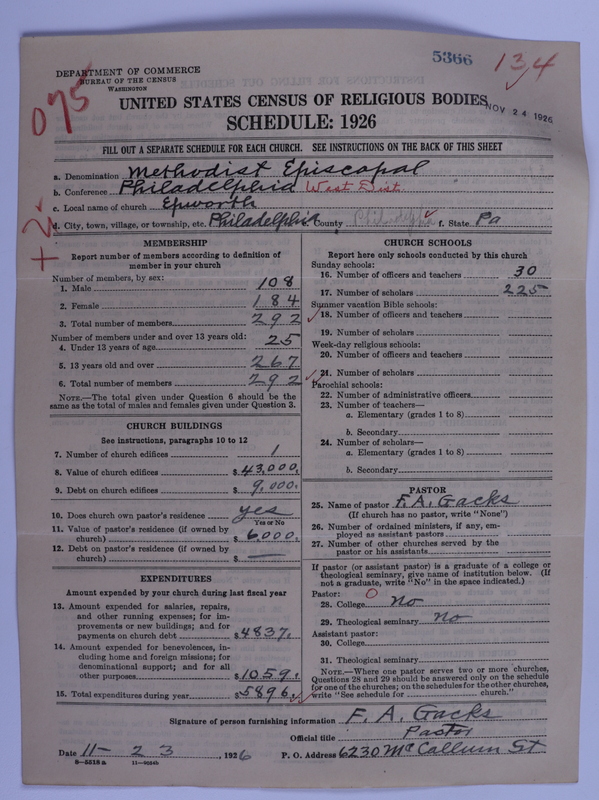 5366
13,4
DEPARTMENT OF COMMERCE
BUREAU OF THE CENSUS
WASHINGTON
075
UNITED STATES CENSUS OF RELIGIOUS BODIES
NOV 24 1926
SCHEDULE: 1926
FILL OUT A SEPARATE SCHEDULE FOR EACH CHURCH. SEE INSTRUCTIONS ON THE BACK OF THIS SHEET
a. Denomination Methodist Episcopal
b. Conference Philadelphia West Dist
c. Local name of church Epworth
d. City, town, village, or township, etc. Philadelphia County Philadelphia f. State Pa
+2
MEMBERSHIP
Report number of members according to definition of
member in your church
Number of members, by sex:
1. Male 108
2. Female 184
3. Total number of members 292
Number of members under and over 13 years old:
4. Under 13 years of age 25
5. 13 years old and over 267
6. Total number of members 292
NOTE.—The total given under Question 6 should be the
same as the total of males and females given under Question 3.
CHURCH BUILDINGS
See instructions, paragraphs 10 to 12
7. Number of church edifices 1
8. Value of church edifices $43,000.
9. Debt on church edifices $9,000.
10. Does church own pastor's residence yes
Yes or No
11. Value of pastor's residence (if owned by
church) $6000.
12. Debt on pastor's residence (if owned by
church) $ —
EXPENDITURES
Amount expended by your church during last fiscal year
13. Amount expended for salaries, repairs,
and other running expenses; for im-
provements or new buildings; and for
payments on church debt $4837.
14. Amount expended for benevolences, in-
cluding home and foreign missions; for
denominational support; and for all
other purposes $1059.
15. Total expenditures during year $5896.
CHURCH SCHOOLS
Report here only schools conducted by this church
Sunday schools:
16. Number of officers and teachers 30
17. Number of scholars 225
Summer vacation Bible schools:
18. Number of officers and teachers
19. Number of scholars
Week-day religious schools:
20. Number of officers and teachers
21. Number of scholars
Parochial schools:
22. Number of administrative officers
23. Number of teachers—
a. Elementary (grades 1 to 8)
b. Secondary
24. Number of scholars—
a. Elementary (grades 1 to 8)
b. Secondary
PASTOR
25. Name of pastor F. A. Gacks
(If church has no pastor, write "None")
26. Number of ordained ministers, if any, em-
ployed as assistant pastors
27. Number of other churches served by the
pastor or his assistants
If pastor (or assistant pastor) is a graduate of a college or
theological seminary, give name of institution below. (If
not a graduate, write "No" in the space indicated.)
Pastor: O
28. College No
29. Theological seminary No
Assistant pastor:
30. College
31. Theological seminary
NOTE.—Where one pastor serves two or more churches,
Questions 28 and 29 should be answered only on the schedule
for one of the churches; on the schedules for the other churches,
write "See schedule for church."
Signature of person furnishing information F. A. Gacks
Official title Pastor
Date 11-23, 1926 P. O. Address 6230 McCallum St
8-5518a